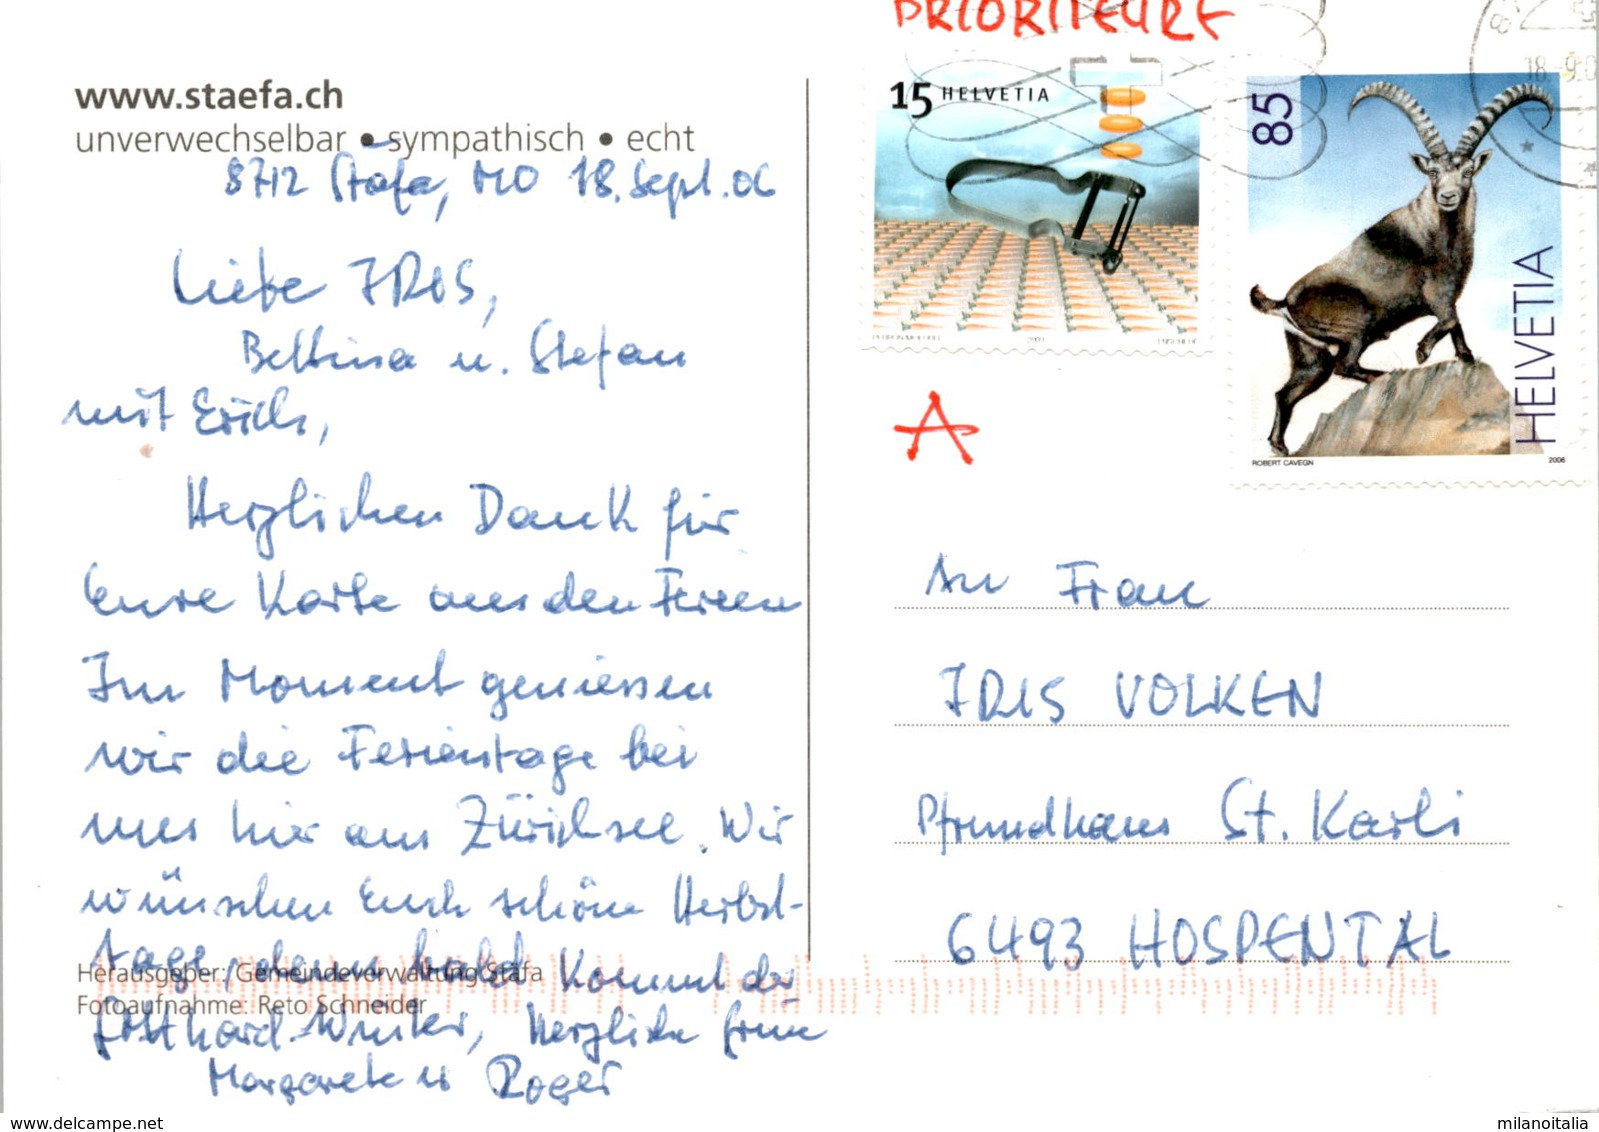 PRIORITEURE
www.staefa.ch
unverwechselbar • sympathisch • echt
8712 Stäfa, MO 18. Sept. 06
Liebe IRIS,
Bettina u. Stefan
mit Erich,
Herzlichen Dank für
Eure Karte aus den Ferien
Im Moment geniessen
wir die Ferientage bei
uns hier am Zürichsee. Wir
wünschen Euch schöne Herbst-
tage, denn bald kommt der
Gotthard-Winter, Herzliche Grüsse
Margarete u Roger
Herausgeber: Gemeindeverwaltung Stäfa
Fotoaufnahme: Reto Schneider
15 HELVETIA
2001
85
HELVETIA
ROBERT CAVEGN 2006
18.-9.0
A
An Frau
IRIS VOLKEN
Pfrundhaus St. Karli
6493 HOSPENTAL
www.delcampe.net
milanoitalia